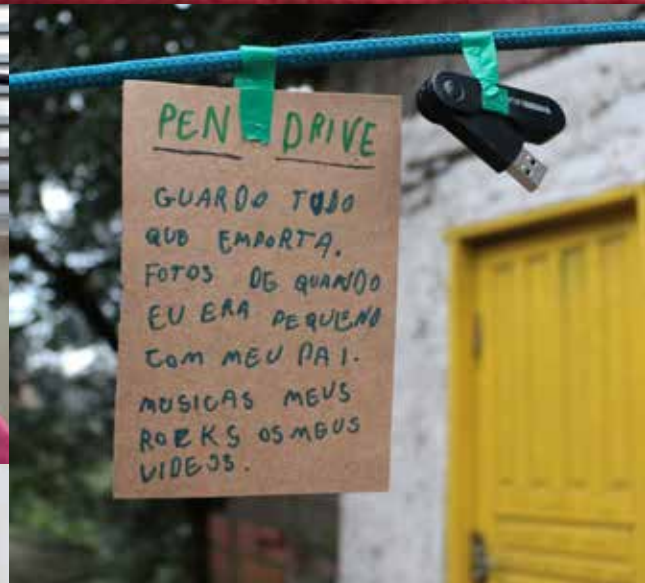 PEN DRIVE
GUARDO TUDO
QUE EMPORTA.
FOTOS DE QUANDO
EU ERA PEQUENO
COM MEU PAI.
MUSICAS MEUS
ROCKS OS MEUS
VIDEOS.